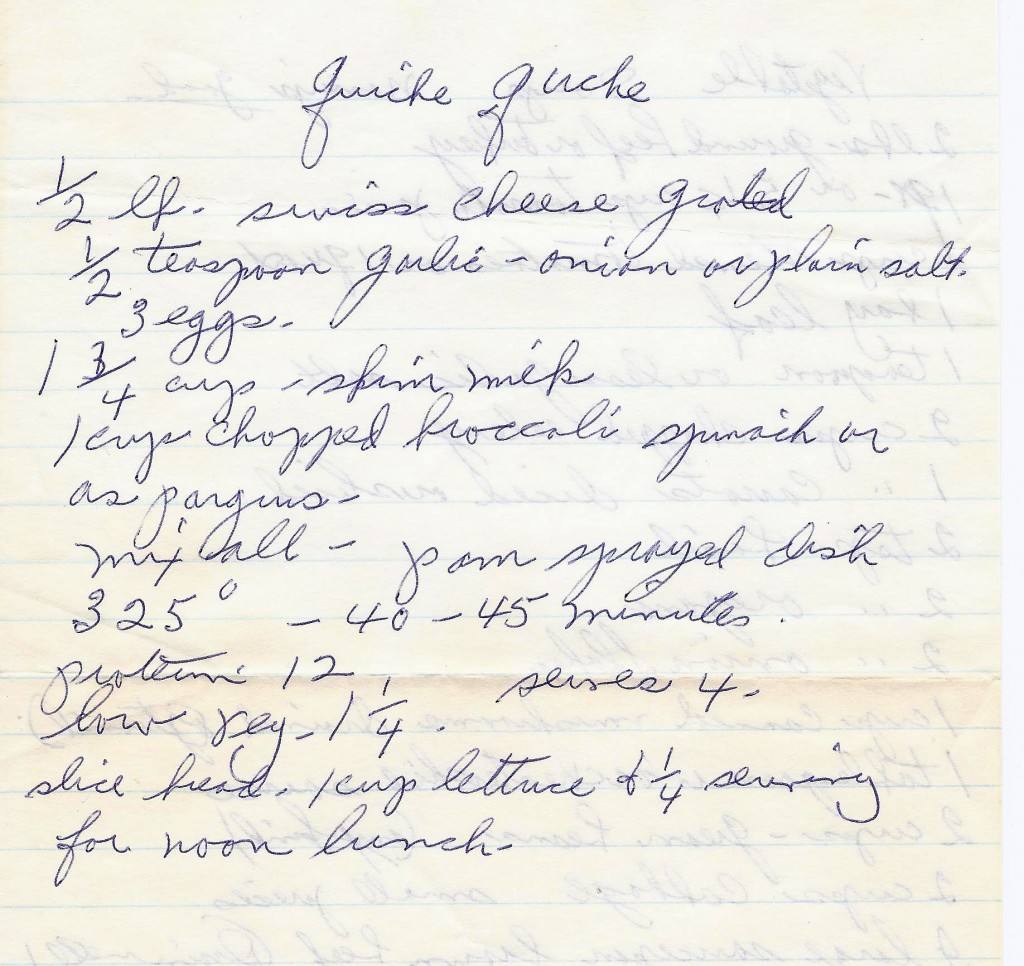 Quiche Quche
1/2 lb. swiss cheese grated
1/2 teaspoon garlic - onion or plain salt.
3 eggs.
1 3/4 cups - skim milk
1 cup chopped broccoli spinach or
as pargus -
mix all - pam sprayed dish
325° - 40 - 45 minutes.
protein 12 serves 4.
low veg - 1 1/4.
slice bread. 1 cup lettuce & 1/4 serving
for noon lunch.